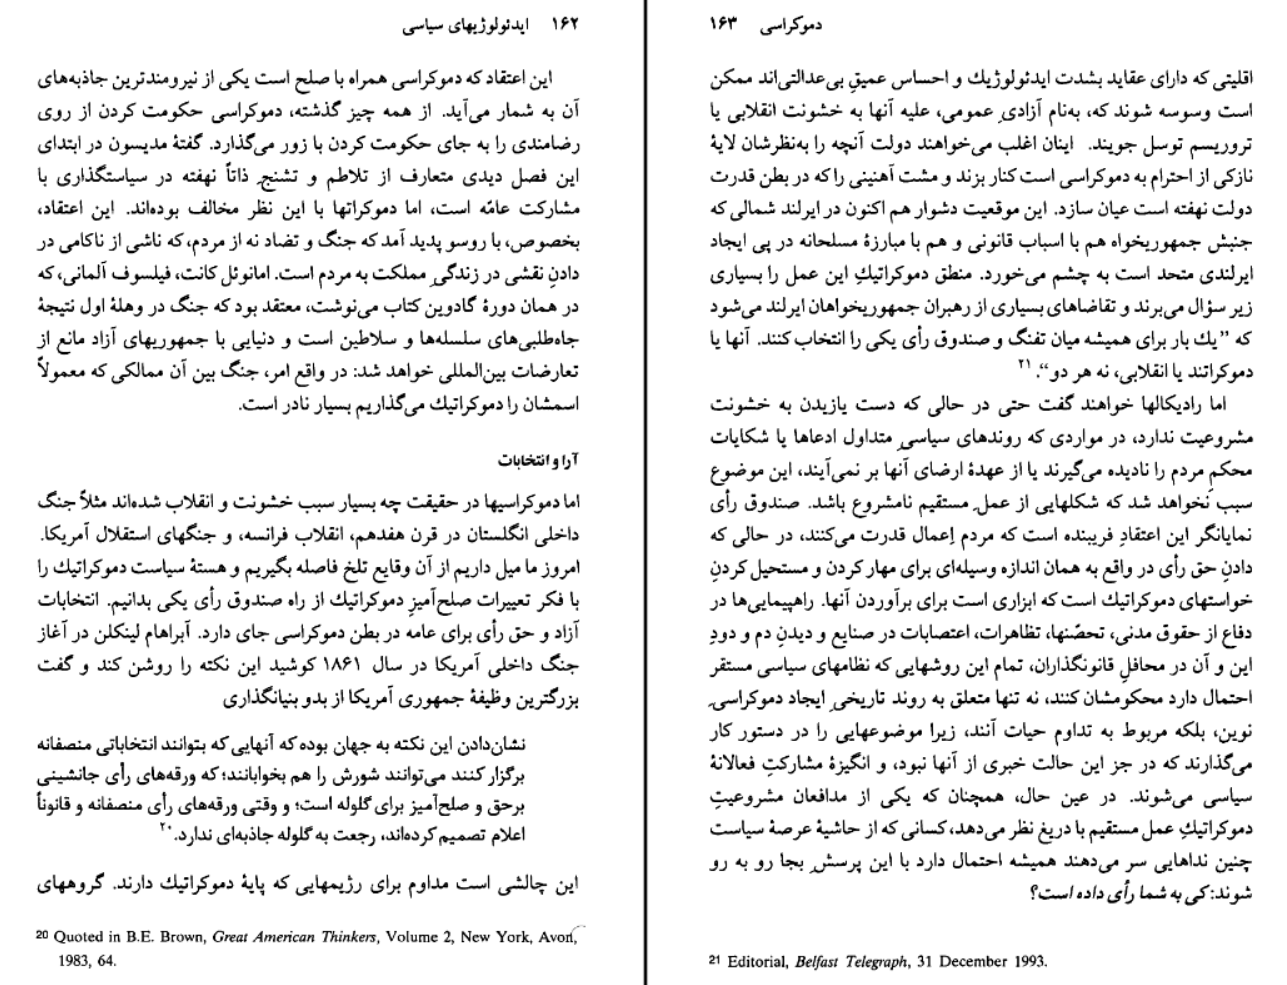 ۱۶۲ ایدئولوژیهای سیاسی
این اعتقاد که دموکراسی همراه با صلح است یکی از نیرومندترین جاذبه‌های
آن به شمار می‌آید. از همه چیز گذشته، دموکراسی حکومت کردن از روی
رضامندی را به جای حکومت کردن با زور می‌گذارد. گفتهٔ مدیسون در ابتدای
این فصل دیدی متعارف از تلاطم و تشنجِ ذاتاً نهفته در سیاستگذاری با
مشارکت عامّه است، اما دموکراتها با این نظر مخالف بوده‌اند. این اعتقاد،
بخصوص، با روسو پدید آمد که جنگ و تضاد نه از مردم، که ناشی از ناکامی در
دادنِ نقشی در زندگیِ مملکت به مردم است. امانوئل کانت، فیلسوف آلمانی، که
در همان دورهٔ گادوین کتاب می‌نوشت، معتقد بود که جنگ در وهلهٔ اول نتیجهٔ
جاه‌طلبی‌های سلسله‌ها و سلاطین است و دنیایی با جمهوریهای آزاد مانع از
تعارضات بین‌المللی خواهد شد: در واقع امر، جنگ بین آن ممالکی که معمولاً
اسمشان را دموکراتیك می‌گذاریم بسیار نادر است.
آرا و انتخابات
اما دموکراسیها در حقیقت چه بسیار سبب خشونت و انقلاب شده‌اند مثلاً جنگ
داخلی انگلستان در قرن هفدهم، انقلاب فرانسه، و جنگهای استقلال آمریکا.
امروز ما میل داریم از آن وقایع تلخ فاصله بگیریم و هستهٔ سیاست دموکراتیك را
با فکر تعییرات صلح‌آمیزِ دموکراتیك از راه صندوق رأی یکی بدانیم. انتخابات
آزاد و حق رأی برای عامه در بطن دموکراسی جای دارد. آبراهام لینکلن در آغاز
جنگ داخلی آمریکا در سال ۱۸۶۱ کوشید این نکته را روشن کند و گفت
بزرگترین وظیفهٔ جمهوری آمریکا از بدو بنیانگذاری
نشان‌دادن این نکته به جهان بوده که آنهایی که بتوانند انتخاباتی منصفانه
برگزار کنند می‌توانند شورش را هم بخوابانند؛ که ورقه‌های رأی جانشینی
برحق و صلح‌آمیز برای گلوله است؛ و وقتی ورقه‌های رأی منصفانه و قانوناً
اعلام تصمیم کرده‌اند، رجعت به گلوله جاذبه‌ای ندارد.۲۰
این چالشی است مداوم برای رژیمهایی که پایهٔ دموکراتیك دارند. گروههای
20 Quoted in B.E. Brown, Great American Thinkers, Volume 2, New York, Avon,
1983, 64.
دموکراسی ۱۶۳
اقلیتی که دارای عقاید بشدت ایدئولوژیك و احساس عمیقِ بی‌عدالتی‌اند ممکن
است وسوسه شوند که، به‌نام آزادیِ عمومی، علیه آنها به خشونت انقلابی یا
تروریسم توسل جویند. اینان اغلب می‌خواهند دولت آنچه را به‌نظرشان لایهٔ
نازکی از احترام به دموکراسی است کنار بزند و مشت آهنینی را که در بطن قدرت
دولت نهفته است عیان سازد. این موقعیت دشوار هم اکنون در ایرلند شمالی که
جنبش جمهوریخواه هم با اسباب قانونی و هم با مبارزهٔ مسلحانه در پی ایجاد
ایرلندی متحد است به چشم می‌خورد. منطق دموکراتیكِ این عمل را بسیاری
زیر سؤال می‌برند و تقاضاهای بسیاری از رهبران جمهوریخواهان ایرلند می‌شود
که ”یك بار برای همیشه میان تفنگ و صندوق رأی یکی را انتخاب کنند. آنها یا
دموکراتند یا انقلابی، نه هر دو“.۲۱
اما رادیکالها خواهند گفت حتی در حالی که دست یازیدن به خشونت
مشروعیت ندارد، در مواردی که روندهای سیاسیِ متداول ادعاها یا شکایات
محکمِ مردم را نادیده می‌گیرند یا از عهدهٔ ارضای آنها بر نمی‌آیند، این موضوع
سبب نخواهد شد که شکلهایی از عملِ مستقیم نامشروع باشد. صندوق رأی
نمایانگر این اعتقادِ فریبنده است که مردم اِعمال قدرت می‌کنند، در حالی که
دادنِ حق رأی در واقع به همان اندازه وسیله‌ای برای مهار کردن و مستحیل کردنِ
خواستهای دموکراتیك است که ابزاری است برای برآوردن آنها. راهپیمایی‌ها در
دفاع از حقوق مدنی، تحصّنها، تظاهرات، اعتصابات در صنایع و دیدنِ دم و دودِ
این و آن در محافلِ قانونگذاران، تمام این روشهایی که نظامهای سیاسی مستقر
احتمال دارد محکومشان کنند، نه تنها متعلق به روند تاریخیِ ایجاد دموکراسیِ
نوین، بلکه مربوط به تداوم حیات آنند، زیرا موضوعهایی را در دستور کار
می‌گذارند که در جز این حالت خبری از آنها نبود، و انگیزهٔ مشارکتِ فعالانهٔ
سیاسی می‌شوند. در عین حال، همچنان که یکی از مدافعان مشروعیتِ
دموکراتیكِ عمل مستقیم با دریغ نظر می‌دهد، کسانی که از حاشیهٔ عرصهٔ سیاست
چنین نداهایی سر می‌دهند همیشه احتمال دارد با این پرسشِ بجا رو به رو
شوند: کی به شما رأی داده است؟
21 Editorial, Belfast Telegraph, 31 December 1993.